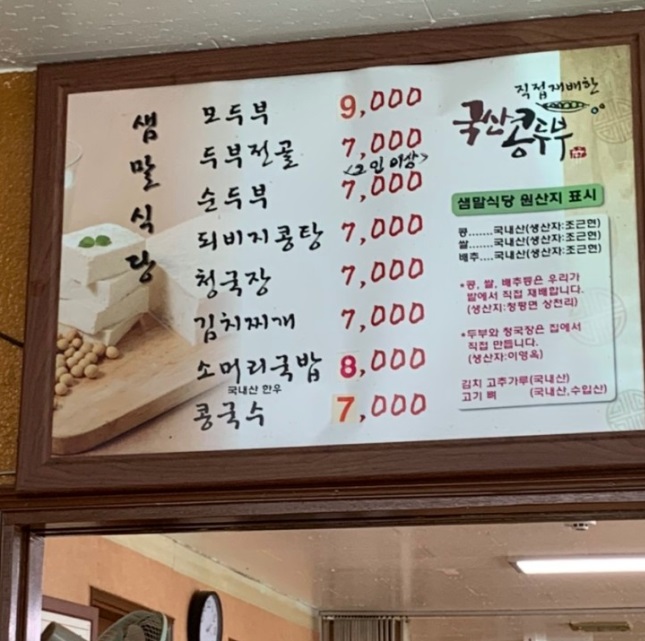 샘말식당
모두부 9,000
두부전골 7,000
<2인 이상>
순두부 7,000
되비지콩탕 7,000
청국장 7,000
김치찌개 7,000
소머리국밥 8,000
국내산 한우
콩국수 7,000
직접재배한
국산콩두부
샘말식당 원산지 표시
콩.......국내산(생산자:조근현)
쌀.......국내산(생산자:조근현)
배추....국내산(생산자:조근현)
*콩, 쌀, 배추등은 우리가
밭에서 직접 재배합니다.
(생산지:청평면 상천리)
*두부와 청국장은 집에서
직접 만듭니다.
(생산자:이영옥)
김치 고추가루(국내산)
고기 뼈 (국내산,수입산)